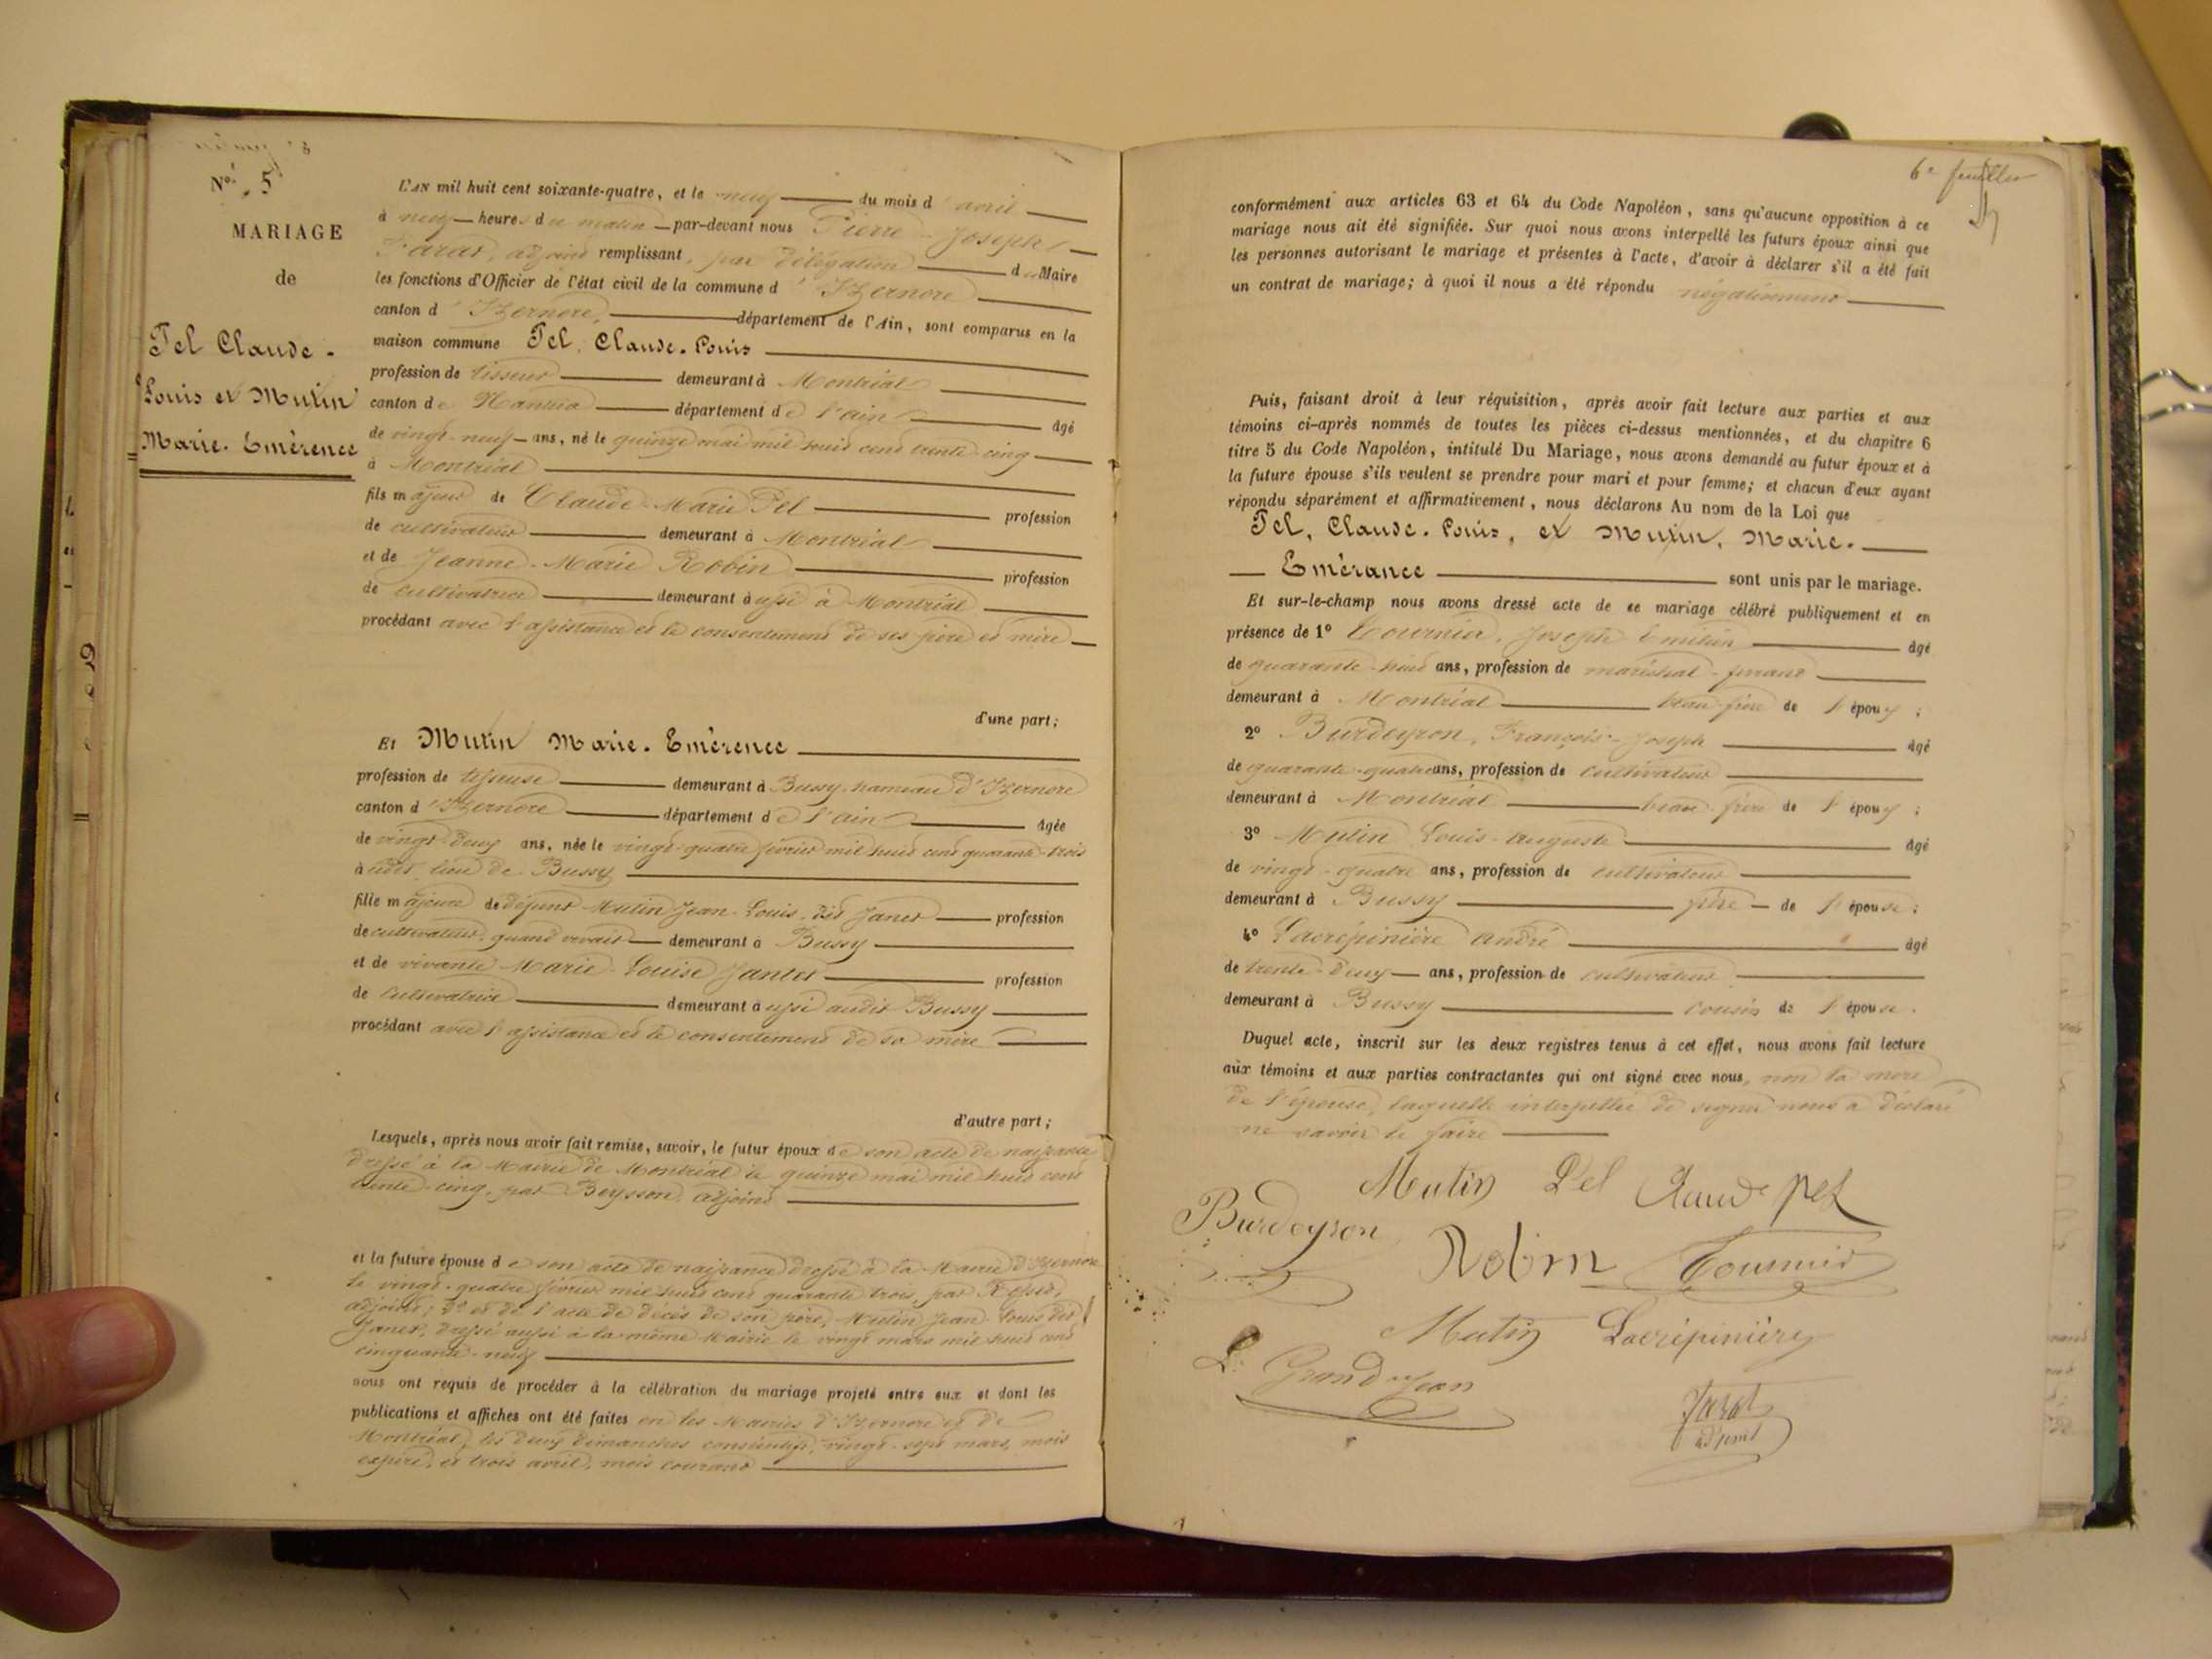 Nº. 5
MARIAGE
de
Pel Claude.
Louis et Mutin
Marie. Emèrence
L'AN mil huit cent soixante-quatre, et le neuf du mois d'avril
à neuf heures du matin par-devant nous Pierre-Joseph
adjoint remplissant, par délégation du Maire
les fonctions d'Officier de l'état civil de la commune d'Izernore
canton d'Izernore, département de l'Ain, sont comparus en la
maison commune Pel, Claude-Louis
profession de tisseur demeurant à Montréal
canton de Nantua département de l'ain âgé
de vingt-neuf ans, né le quinze mai mil huit cent trente-cinq
à Montréal
fils majeur de Claude-Marie Pel profession
de cultivateur demeurant à Montréal
et de Jeanne-Marie Robin profession
de cultivatrice demeurant aussi à Montréal
procédant avec l'assistance et le consentement de ses père et mère
d'une part;
Et Mutin Marie. Emèrence
profession de tisseuse demeurant à Bussy, hameau d'Izernore
canton d'Izernore département de l'ain âgée
de vingt-deux ans, née le vingt-quatre février mil huit cent quarante-trois
à udit lieu de Bussy
fille majeure de défunt Mutin Jean-Louis, dit Janet profession
de cultivateur, quand vivait demeurant à Bussy
et de vivante Marie-Louise Jantet profession
de cultivatrice demeurant aussi audit Bussy
procédant avec l'assistance et le consentement de sa mère
d'autre part;
Lesquels, après nous avoir fait remise, savoir, le futur époux de son acte de naissance
dressé à la Mairie de Montréal le quinze mai mil huit cent
trente-cinq, par Beysson, adjoint
et la future épouse de son acte de naissance dressé à la Mairie d'Izernore
le vingt-quatre février mil huit cent quarante trois, par
adjoint; 2º et de l'acte de décès de son père, Mutin Jean-Louis dit
Janet, dressé aussi à la même Mairie le vingt mars mil huit cent
cinquante-neuf
nous ont requis de procéder à la célébration du mariage projeté entre eux et dont les
publications et affiches ont été faites en les Mairies d'Izernore et de
Montréal, les deux dimanches consécutifs, vingt-sept mars, mois
expiré, et trois avril, mois courant
6e feuillet
conformément aux articles 63 et 64 du Code Napoléon, sans qu'aucune opposition à ce
mariage nous ait été signifiée. Sur quoi nous avons interpellé les futurs époux ainsi que
les personnes autorisant le mariage et présentes à l'acte, d'avoir à déclarer s'il a été fait
un contrat de mariage; à quoi il nous a été répondu négativement
Puis, faisant droit à leur réquisition, après avoir fait lecture aux parties et aux
témoins ci-après nommés de toutes les pièces ci-dessus mentionnées, et du chapitre 6
titre 5 du Code Napoléon, intitulé Du Mariage, nous avons demandé au futur époux et à
la future épouse s'ils veulent se prendre pour mari et pour femme; et chacun d'eux ayant
répondu séparément et affirmativement, nous déclarons Au nom de la Loi que
Pel, Claude. Louis, et Mutin, Marie.
Emèrance sont unis par le mariage.
Et sur-le-champ nous avons dressé acte de ce mariage célébré publiquement et en
présence de 1º Tournier, Joseph Emilien âgé
de quarante-huit ans, profession de maréchal-ferrant
demeurant à Montréal beau-frère de l'époux;
2º Burdeyron, François-Joseph âgé
de quarante-quatre ans, profession de cultivateur
demeurant à Montréal beau-frère de l'époux;
3º Mutin Louis-Auguste âgé
de vingt-quatre ans, profession de cultivateur
demeurant à Bussy frère de l'épouse;
4º Lacrépinière André âgé
de trente-deux ans, profession de cultivateur
demeurant à Bussy cousin de l'épouse.
Duquel acte, inscrit sur les deux registres tenus à cet effet, nous avons fait lecture
aux témoins et aux parties contractantes qui ont signé avec nous, non la mère
de l'épouse, laquelle interpellée de signer nous a déclaré
ne savoir le faire
Mutin Pel Claude pel
Burdeyron Robin Tournier
Mutin Lacrépinière
L. Grandjean
adjoint